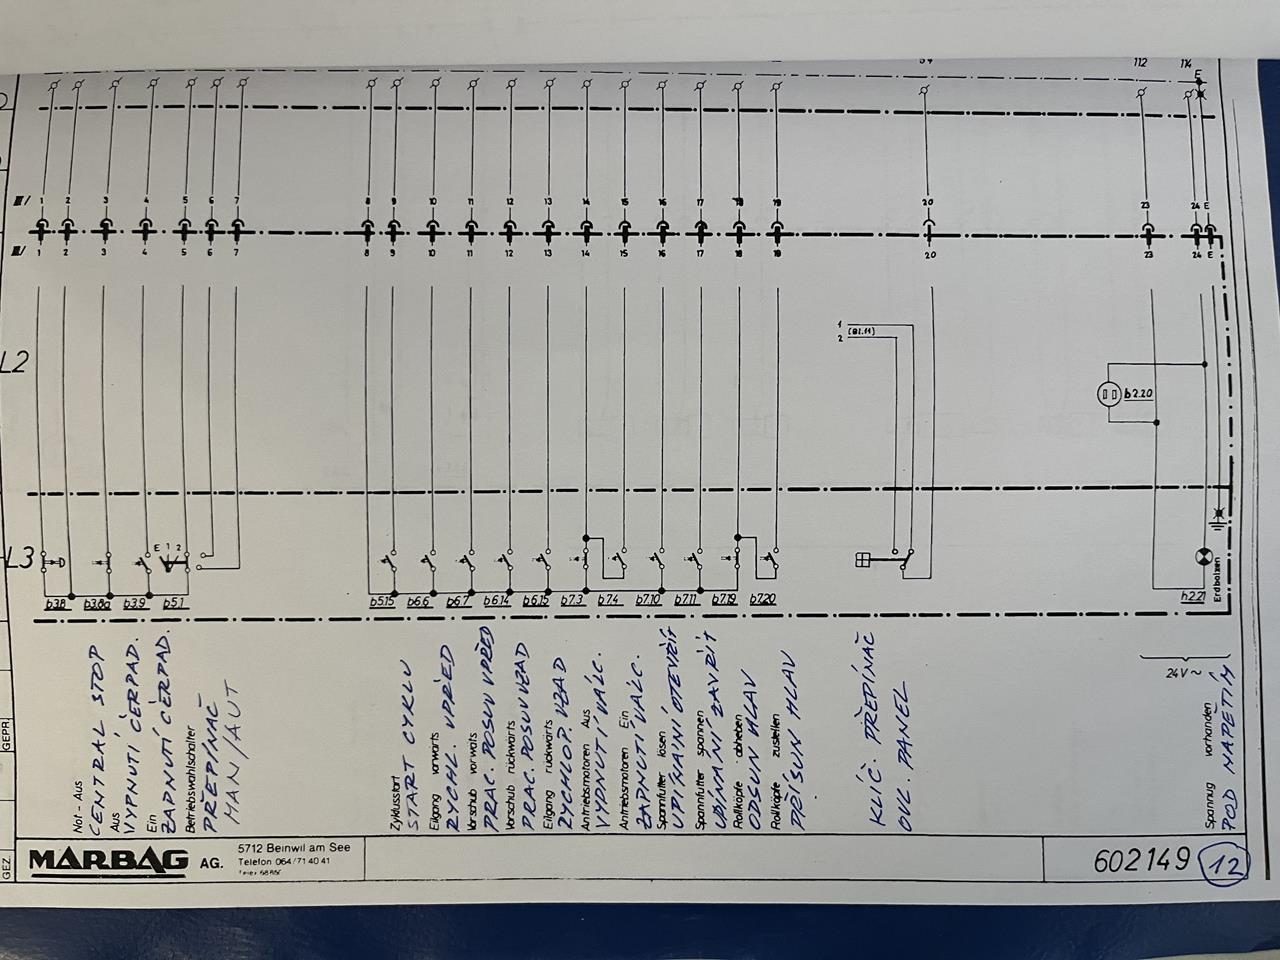 112 114
E
III/ 1 2 3 4 5 6 7 8 9 10 11 12 13 14 15 16 17 18 19 20 23 24 E
III/ 1 2 3 4 5 6 7 8 9 10 11 12 13 14 15 16 17 18 19 20 23 24 E
1
(Bl.11)
2
L2
b2.20
L3
E 1 2
b3.8 b3.8a b3.9 b5.1 b5.15 b6.6 b6.7 b6.14 b6.15 b7.3 b7.4 b7.10 b7.11 b7.19 b7.20 h2.21
Erdbolzen
24V~
Not - Aus
CENTRAL STOP
Aus
VYPNUTÍ ČERPAD.
Ein
ZAPNUTÍ ČERPAD.
Betriebswahlschalter
PŘEPÍNAČ
MAN/AUT
Zyklusstart
START CYKLU
Eilgang vorwärts
RYCHL. VPŘED
Vorschub vorwats
PRAC. POSUV VPŘED
Vorschub rückwärts
PRAC. POSUV VZAD
Eilgang rückwärts
RYCHLOP. VZAD
Antriebsmotoren Aus
VYPNUTÍ VÁLC.
Antriebsmotoren Ein
ZAPNUTÍ VÁLC.
Spannfutter lösen
UPÍNÁNÍ OTEVŘÍT
Spannfutter spannen
UPÍNÁNÍ ZAVŘÍT
Rollköpfe abheben
ODSUN HLAV
Rollköpfe zustellen
PŘÍSUN HLAV
KLÍČ. PŘEPÍNAČ
OVL. PANEL
Spannug vorhanden
POD NAPĚTÍM
GEPR.
GEZ.
MARBAG AG.
5712 Beinwil am See
Telefon 064/71 40 41
602149
12